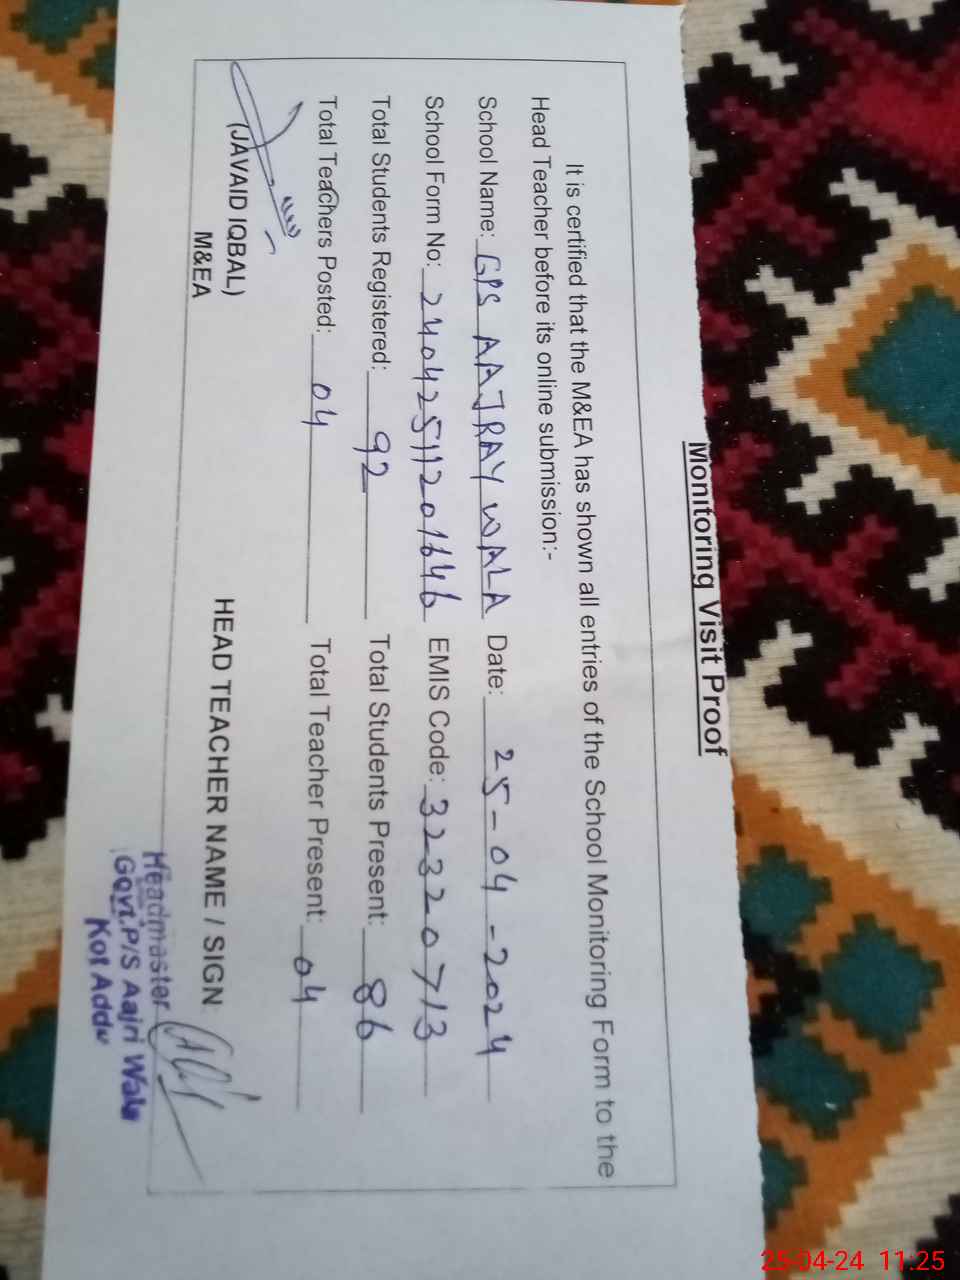 Monitoring Visit Proof
It is certified that the M&EA has shown all entries of the School Monitoring Form to the
Head Teacher before its online submission:-
School Name: GPS AAJRAY WALA Date: 25-04-2024
School Form No: 24042511201646 EMIS Code: 32320713
Total Students Registered: 92 Total Students Present: 86
Total Teachers Posted: 04 Total Teacher Present: 04
(JAVAID IQBAL)
M&EA
HEAD TEACHER NAME / SIGN:
Headmaster
Govt. P/S Aajri Wala
Kot Addu
25-04-24 11:25